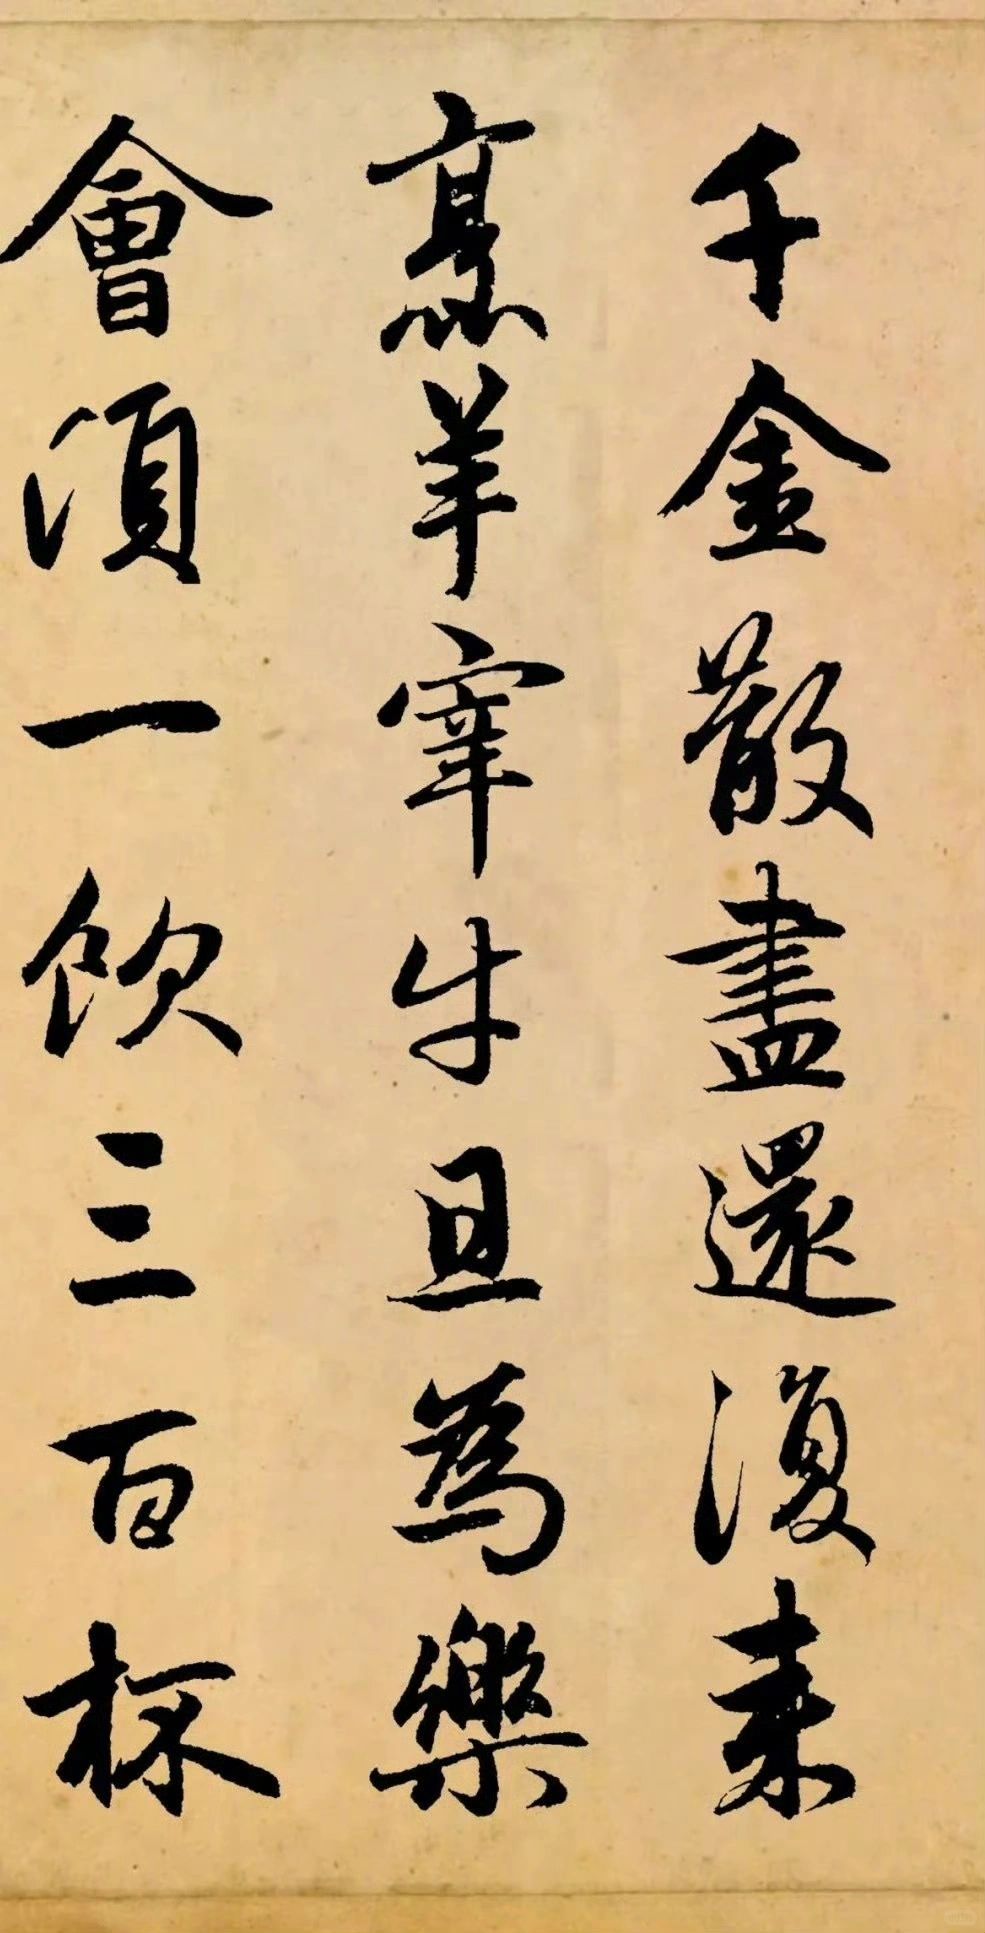 千金散盡還復來
烹羊宰牛且為樂
會須一飲三百杯